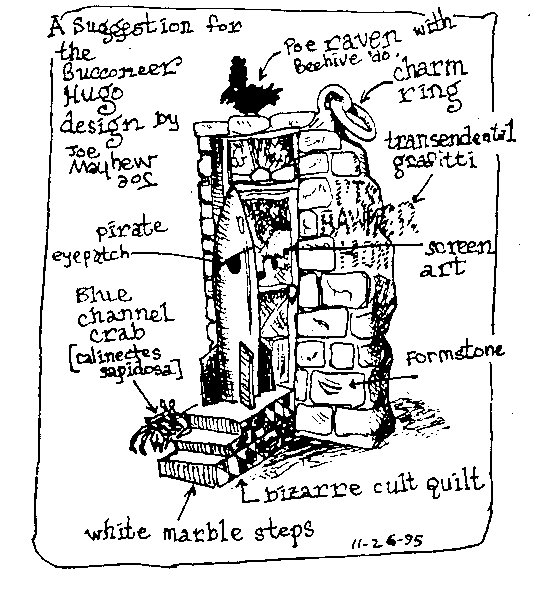 A Suggestion for
the
Buccaneer
Hugo
design by
Joe
Mayhew
Poe raven with
Beehive 'do.
charm
ring
transendental
grafitti
pirate
eyepatch
screen
art
Blue
channel
crab
[calinectes
sapidosa]
Formstone
bizarre cult quilt
white marble steps
11-26-95